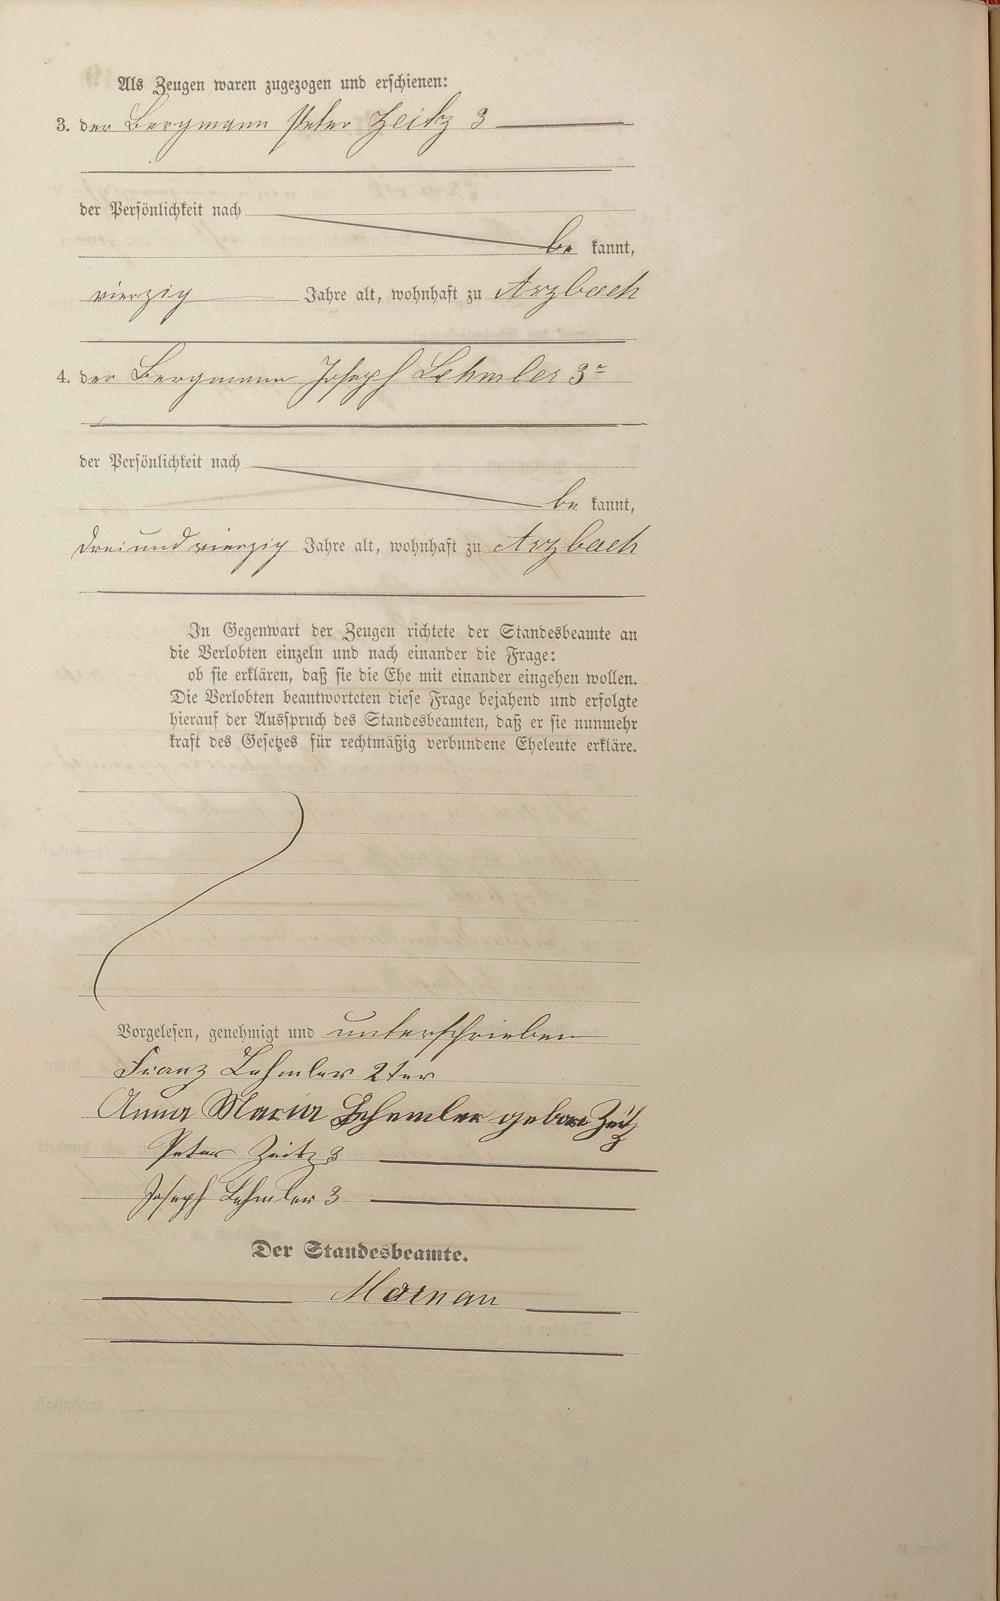 Als Zeugen waren zugezogen und erschienen:
3. der Bergmann Peter Zeitz 3
der Persönlichkeit nach
be kannt,
vierzig Jahre alt, wohnhaft zu Arzbach
4. der Bergmann Joseph Lehmler 3r
der Persönlichkeit nach
be kannt,
drei und vierzig Jahre alt, wohnhaft zu Arzbach
In Gegenwart der Zeugen richtete der Standesbeamte an
die Verlobten einzeln und nach einander die Frage:
ob sie erklären, daß sie die Ehe mit einander eingehen wollen.
Die Verlobten beantworteten diese Frage bejahend und erfolgte
hierauf der Ausspruch des Standesbeamten, daß er sie nunmehr
kraft des Gesetzes für rechtmäßig verbundene Eheleute erkläre.
Vorgelesen, genehmigt und unterschrieben
Franz Lehmler 2ter
Anna Maria Lehmler gebore Zeitz
Peter Zeitz 3
Joseph Lehmler 3
Der Standesbeamte.